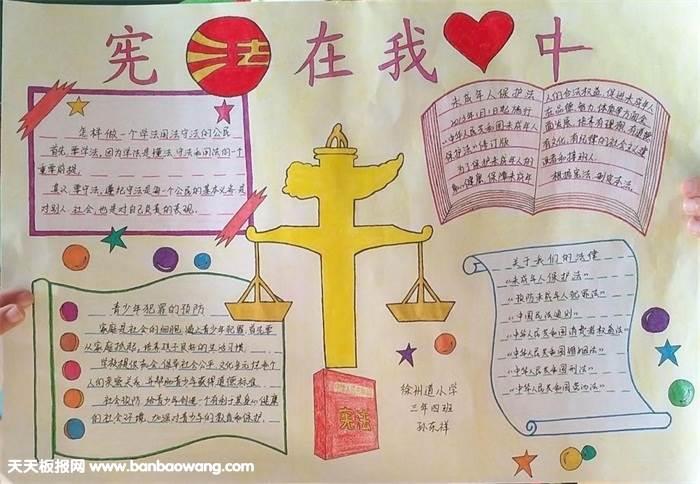 宪法在我中
怎样做一个学法用法守法的公民
首先,要学法,因为学法是懂法、守法和用法的一个
重要前提。
其次,要守法,遵纪守法是每个公民的基本义务是
对别人、社会,也是对自己负责的表现。
未成年人保护法
2013年1月1日起施行
《中华人民共和国未成年人
保护法》修订版
为了保护未成年人的
身心健康,保障未成年
人的合法权益,促进未成年人
在品德、智力、体质等方面全
面发展,培养有理想、有道德
有文化、有纪律的社会主义建
设者和接班人,
根据宪法,制定本法。
青少年犯罪的预防
家庭是社会的细胞,遏止青少年犯罪,首先要
从家庭抓起,培养孩子良好的生活习惯。
学校提倡
人们亲密关系,并帮助青少年获得道德标准。
社会预防,给青少年创造一个有利于其身心健康
们社会环境,加强对青少年的教育和保护。
关于我们的法律
“未成年人保护法”
“预防未成年人犯罪法”
“中国民法通则”
“中华人民共和国消费者权益法”
“中华人民共和国婚姻法”
“中华人民共和国刑法”
“中华人民共和国宪法”
中华人民共和国
宪法
徐州道小学
三年四班
孙东祥
天天板报网 www.banbaowang.com